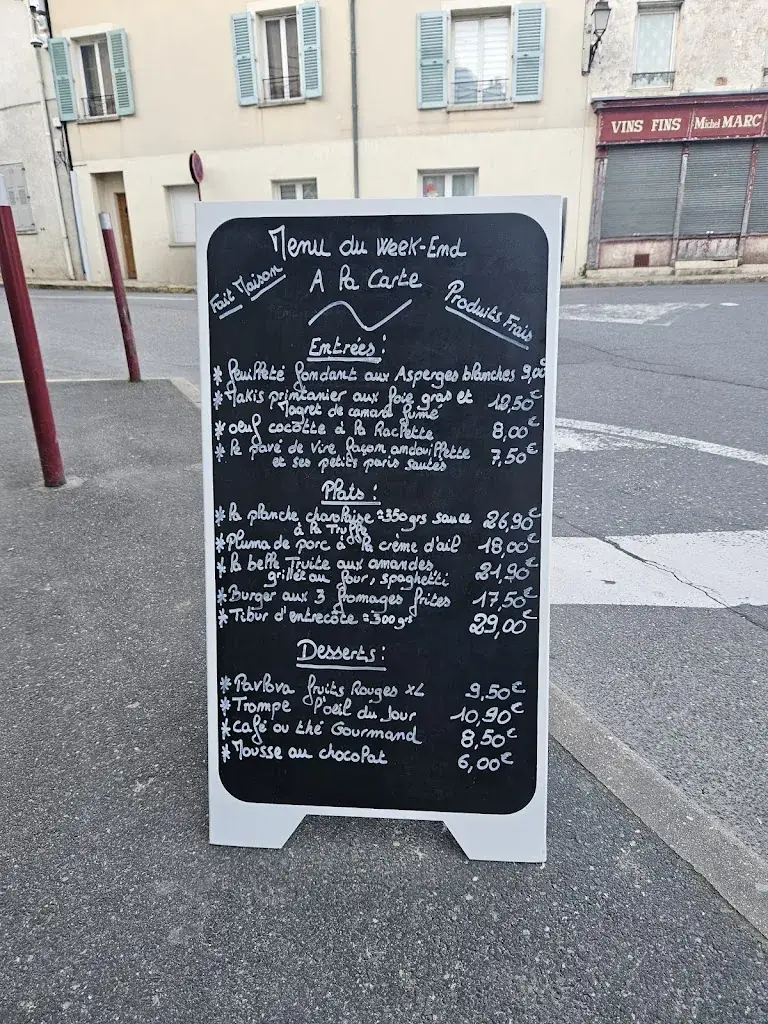 VINS FINS Michel MARC
Menu du Week-End
A la Carte
Fait Maison
Produits Frais
Entrées :
* feuilleté fondant aux Asperges blanches 9,00
* Makis printanier aux foie gras et 12,50€
Magret de canard fumé
* oeuf cocotte à la Raclette 8,00€
* le pavé de Vire façon andouillette 7,50€
et ses petits paris sautés
Plats :
* la planche charolaise ≈350grs sauce 26,90€
à la Truffe
* Pluma de porc à la crème d'ail 18,00€
* la belle Truite aux amandes 21,90€
grillée au four, spaghetti
* Burger aux 3 fromages frites 17,50€
* Tibur d'entrecôte ≈300grs 29,00€
Desserts :
* Pavlova fruits Rouges XL 9,50€
* Trompe l'oeil du Jour 10,90€
* café ou thé Gourmand 8,50€
* Mousse au chocolat 6,00€